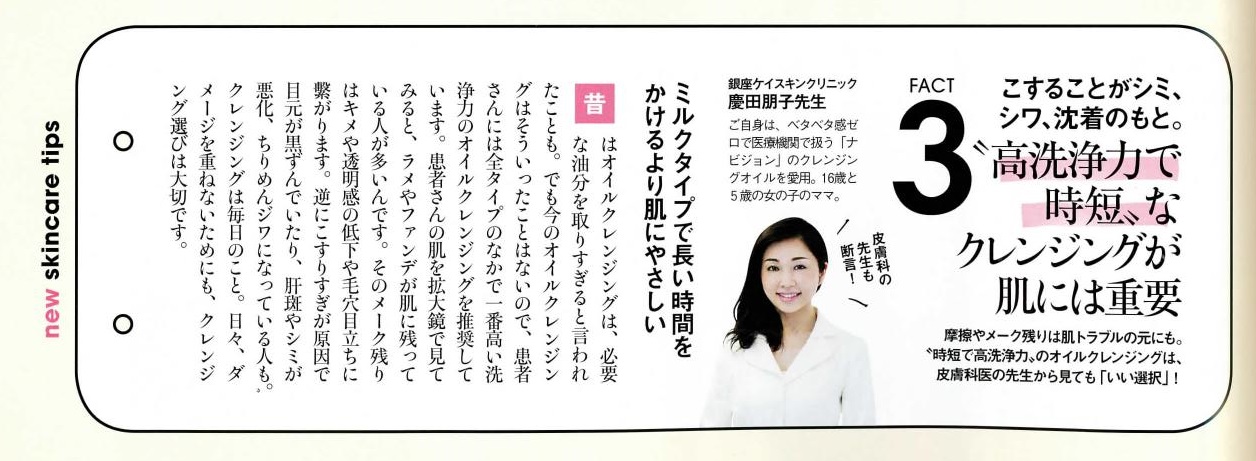 new skincare tips
こすることがシミ、
シワ、沈着のもと。
〝高洗浄力で
時短〟な
クレンジングが
肌には重要
摩擦やメーク残りは肌トラブルの元にも。
〝時短で高洗浄力〟のオイルクレンジングは、
皮膚科医の先生から見ても「いい選択」!
FACT
3
銀座ケイスキンクリニック
慶田朋子先生
ご自身は、ベタベタ感ゼ
ロで医療機関で扱う「ナ
ビジョン」のクレンジン
グオイルを愛用。16歳と
5歳の女の子のママ。
皮膚科の
先生も
断言!
ミルクタイプで長い時間を
かけるより肌にやさしい
昔はオイルクレンジングは、必要
な油分を取りすぎると言われ
たことも。でも今のオイルクレンジン
グはそういったことはないので、患者
さんには全タイプのなかで一番高い洗
浄力のオイルクレンジングを推奨して
います。患者さんの肌を拡大鏡で見て
みると、ラメやファンデが肌に残って
いる人が多いんです。そのメーク残り
はキメや透明感の低下や毛穴目立ちに
繋がります。逆にこすりすぎが原因で
目元が黒ずんでいたり、肝斑やシミが
悪化、ちりめんジワになっている人も。
クレンジングは毎日のこと。日々、ダ
メージを重ねないためにも、クレンジ
ング選びは大切です。